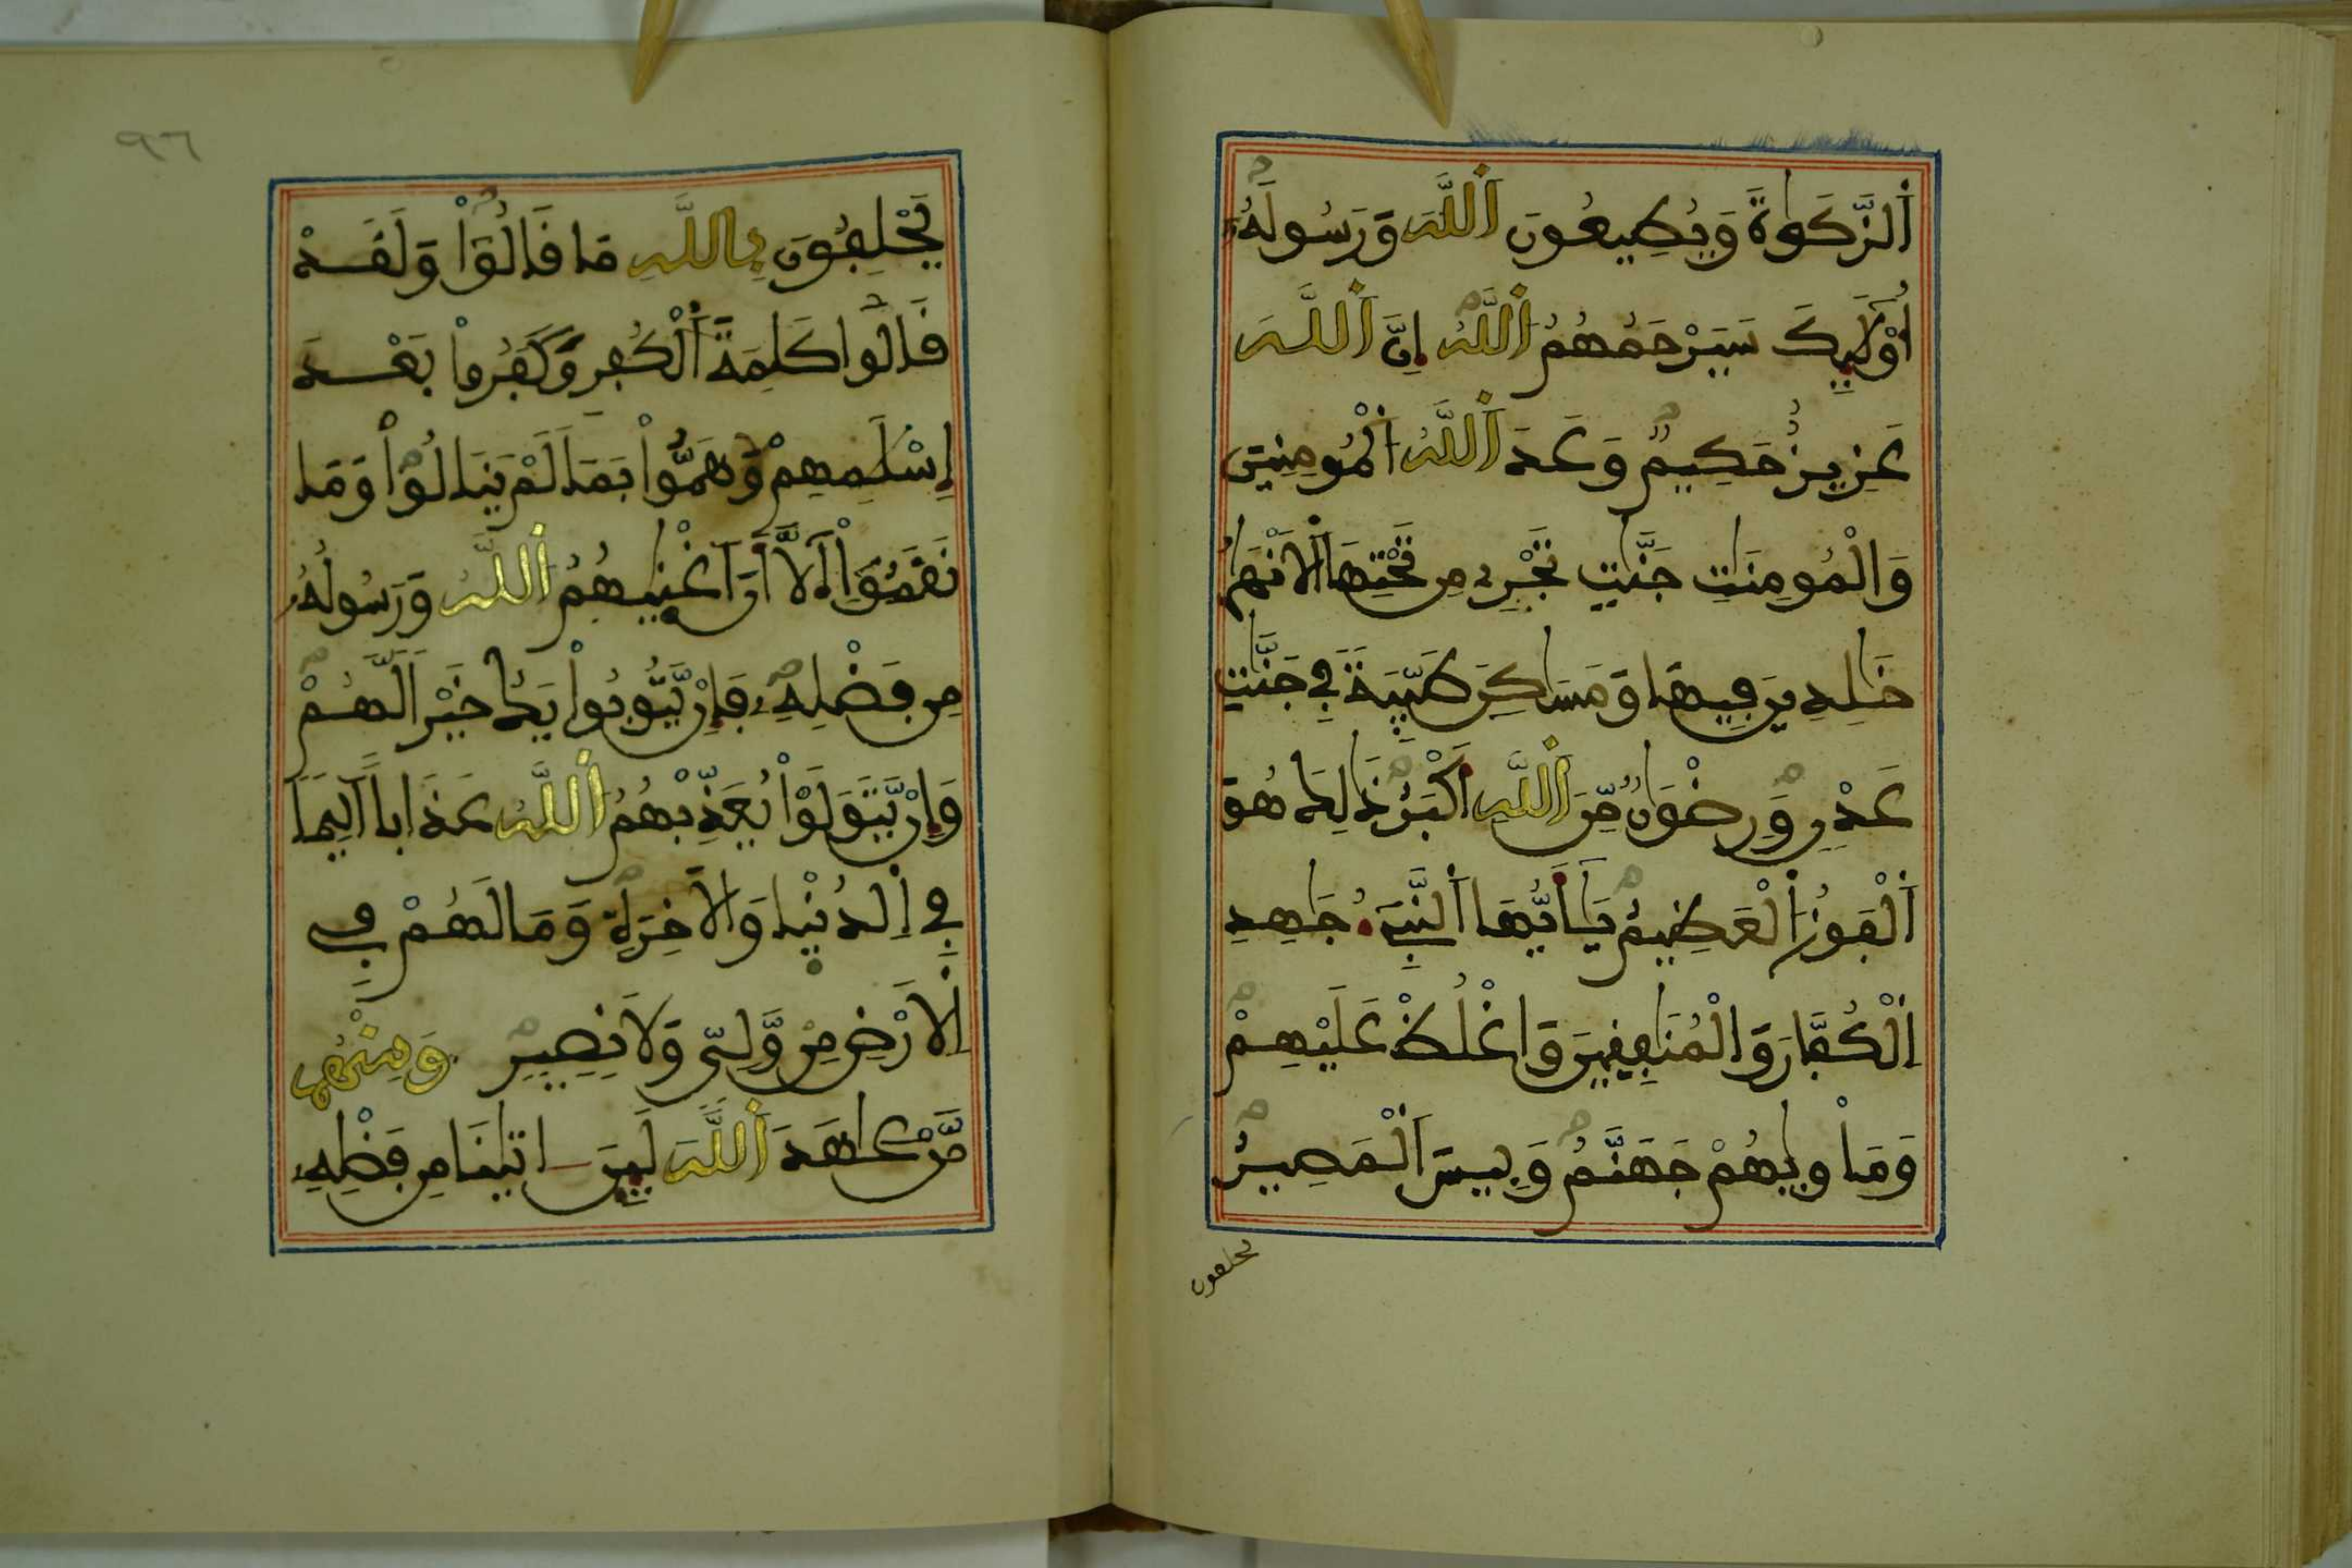 اَلزَّكَوٰةَ وَيُطِيعُونَ اَللَّهَ وَرَسُولَهُ
أُوْلَٰٓئِكَ سَيَرْحَمُهُمُ اُللَّهُ إِنَّ اَللَّهَ
عَزِيزٌ حَكِيمٌ وَعَدَ اَللَّهُ اُلْمُومِنِينَ
وَالْمُومِنَٰتِ جَنَّٰتٍ تَجْرِے مِن تَحْتِهَا اَلَانْهَٰرُ
خَٰلِدِينَ فِيهَا وَمَسَٰكِنَ طَيِّبَةً فِے جَنَّٰتِ
عَدْنٍ وَرِضْوَٰنٌ مِّنَ اَللَّهِ أَكْبَرُ ذَٰلِكَ هُوَ
اَلْفَوْزُ اُلْعَظِيمُ يَٰٓأَيُّهَا اَلنَّبِےُٓ جَٰهِدِ
اِلْكُفَّارَ وَالْمُنَٰفِقِينَ وَاغْلُظْ عَلَيْهِمْ
وَمَأْوٜيٰهُمْ جَهَنَّمُ وَبِيسَ اَلْمَصِيرُ
يحلفون
٩٦
يَحْلِفُونَ بِاللَّهِ مَا قَالُواْ وَلَقَدْ
قَالُواْ كَلِمَةَ اَلْكُفْرِ وَكَفَرُواْ بَعْدَ
إِسْلَٰمِهِمْ وَهَمُّواْ بِمَا لَمْ يَنَالُواْ وَمَا
نَقَمُوٓاْ إِلَّآ أَنَ اَغْنٜيٰهُمُ اُللَّهُ وَرَسُولُهُ
مِن فَضْلِهِۦ فَإِنْ يَّتُوبُواْ يَكُ خَيْراً لَّهُمْ
وَإِنْ يَّتَوَلَّوْاْ يُعَذِّبْهُمُ اُللَّهُ عَذَاباً اَلِيماً
فِے اِلدُّنْيٜا وَالَاخِرَةِ وَمَا لَهُمْ فِے
اِلَارْضِ مِنْ وَّلِيٍّ وَلَا نَصِيرٍ وَمِنْهُم
مَّنْ عَٰهَدَ اَللَّهَ لَئِنَ اٰتٜيٰنَا مِن فَضْلِهِۦ